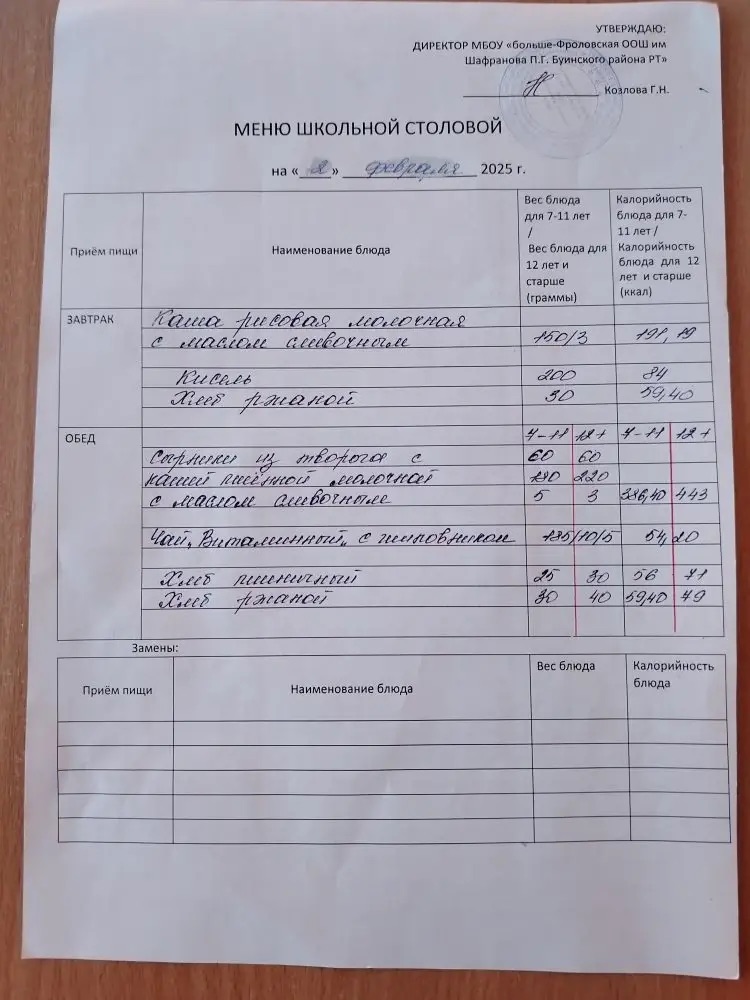 УТВЕРЖДАЮ:
ДИРЕКТОР МБОУ «больше-Фроловская ООШ им
Шафранова П.Г. Буинского района РТ»
Козлова Г.Н.
МЕНЮ ШКОЛЬНОЙ СТОЛОВОЙ
на « » февраля 2025 г.
Приём пищи
Наименование блюда
Вес блюда
для 7-11 лет
/
Вес блюда для
12 лет и
старше
(граммы)
Калорийность
блюда для 7-
11 лет /
Калорийность
блюда для 12
лет и старше
(ккал)
ЗАВТРАК Каша рисовая молочная
с маслом сливочным 150/3 191,19
Кисель 200 84
Хлеб ржаной 30 59,40
ОБЕД 7-11 12+ 7-11 12+
Сырники из творога с 60 60
кашей пшённой молочной 220
с маслом сливочным 5 3 386,40 443
Чай „Витаминный„ с шиповником 185/10/5 54,20
Хлеб пшеничный 25 30 56 71
Хлеб ржаной 30 40 59,40 79
Замены:
Приём пищи Наименование блюда
Вес блюда
Калорийность
блюда